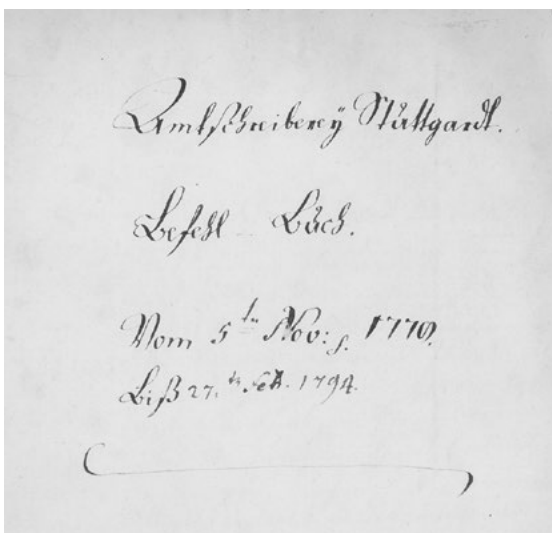 Amtschreiberey Stuttgardt.
Befehl - Buch.
Vom 5ten Nov:
Biß 27.ten Feb. 1794.